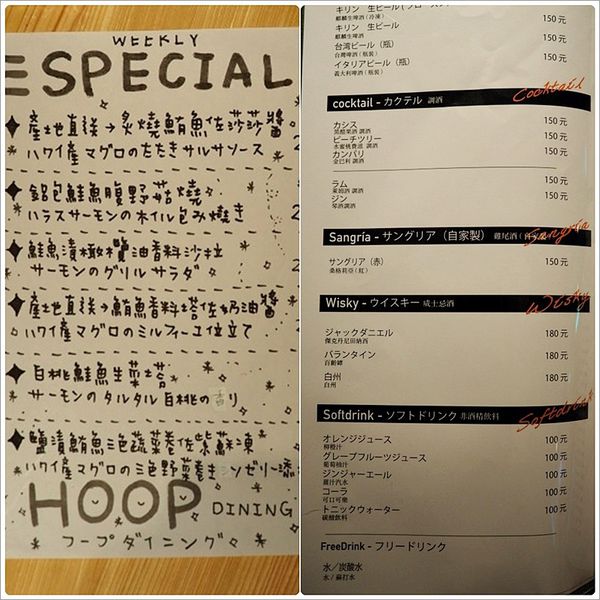 WEEKLY
SPECIAL
產地直送→炙燒鮪魚佐莎莎醬
ハワイ産マグロのたたきサルサソース
鋁包鮭魚腹野菇燒
ハラスサーモンのホイル包み焼き
鮭魚漬橄欖油香料沙拉
サーモンのグリルサラダ
產地直送→鮪魚香料塔佐奶油醬
ハワイ産マグロのミルフィーユ仕立て
白桃鮭魚生菜塔
サーモンのタルタル白桃の香り
鹽漬鮪魚三色蔬菜卷佐紫蘇凍
ハワイ産マグロの三色野菜巻き
HOOP DINING
フープダイニング
キリン 生ビール
麒麟生啤酒(冷凍) 150元
キリン 生ビール 150元
麒麟生啤酒
台湾ビール(瓶) 150元
台灣啤酒(瓶裝)
イタリアビール(瓶) 150元
義大利啤酒(瓶裝)
cocktail - カクテル 調酒
Cocktail
カシス 150元
黑醋栗酒 調酒
ピーチツリー 150元
水蜜桃香甜 調酒
カンパリ 150元
金巴利 調酒
ラム 150元
萊姆酒 調酒
ジン 150元
琴酒調酒
Sangría - サングリア(自家製) 雞尾酒
Sangria
サングリア(赤) 150元
桑格莉亞(紅)
Wisky - ウイスキー 威士忌酒
Wisky
ジャックダニエル 180元
傑克丹尼田納西
バランタイン 180元
百齡罈
白州 180元
白州
Softdrink - ソフトドリンク 非酒精飲料
Softdrink
オレンジジュース 100元
柳橙汁
グレープフルーツジュース 100元
葡萄柚汁
ジンジャーエール 100元
薑汁汽水
コーラ 100元
可口可樂
トニックウォーター 100元
碳酸飲料
FreeDrink - フリードリンク
水/炭酸水
水/蘇打水